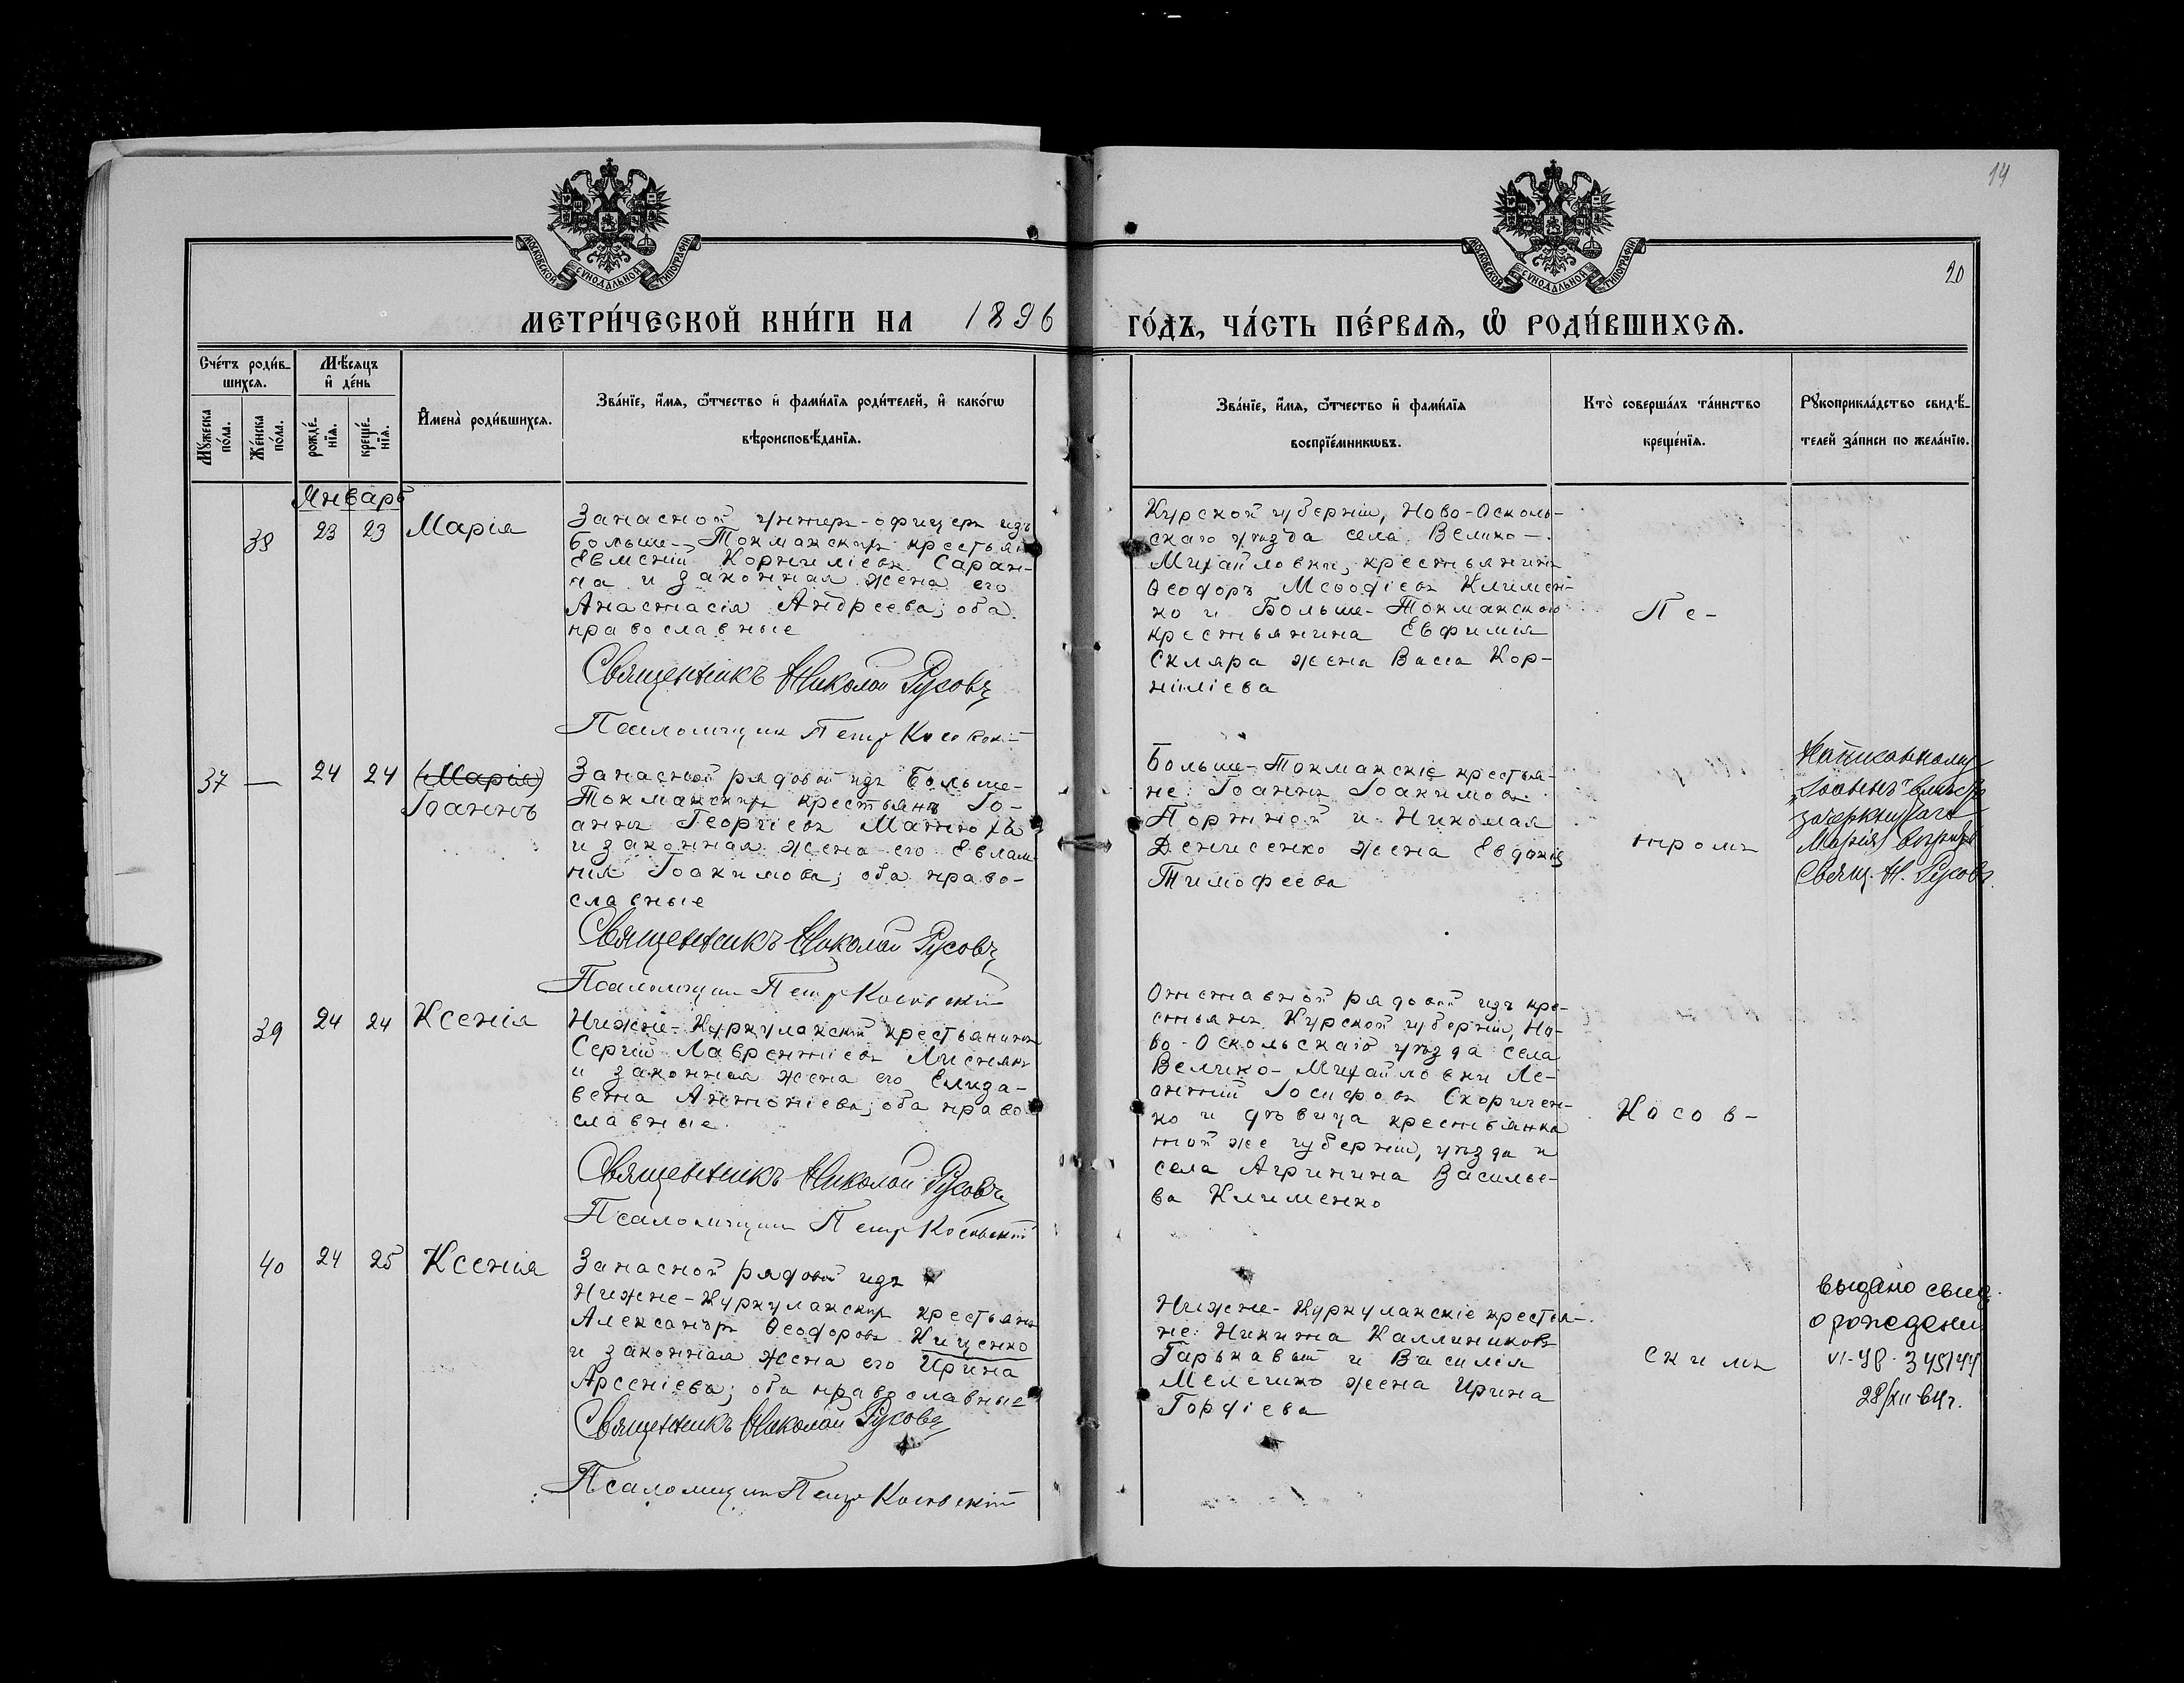 14
20
МОСКОВСКОЙ СѴНОДАЛЬНОЙ ТИПОГРАФІИ
МОСКОВСКОЙ СѴНОДАЛЬНОЙ ТИПОГРАФІИ
МЕТРИ́ЧЕСКОЙ КНИ́ГИ НА 1896
ГО́ДЪ, ЧА́СТЬ ПЕ́РВАѦ, Ѡ҆ РОДИ́ВШИХСѦ.
Сче́тъ роди́в-
шихсѧ.
Мꙋ́жеска
по́ла.
Же́нска
по́ла.
Мѣ́сѧцъ
и҆ де́нь
рожде́-
нїѧ.
креще́-
нїѧ.
И҆мена̀ роди́вшихсѧ.
Зва́нїе, и҆́мѧ, ѻ҆́тчество и҆ фами́лїѧ роди́телей, и҆ како́гѡ
вѣроисповѣ́данїѧ.
Зва́нїе, и҆́мѧ, ѻ҆́тчество и҆ фами́лїѧ
воспрїе́мникѡвъ.
Кто̀ соверша́лъ та́инство
креще́нїѧ.
Рꙋкоприкла́дство свидѣ́-
телей за́писи по жела́нїю.
Январь
38 23 23 Марія
Запасной унтеръ-офицеръ изъ
Больше-Токмакскихъ крестьянъ
Евменій Корниліевъ Саран-
ча и законная жена его
Анастасія Андреева; оба
православные
Священникъ Николай Русовъ
Псаломщикъ Петръ Косовскій
Курской губерніи, Ново-Осколь-
скаго уѣзда села Велико-
Михайловки, крестьянинъ
Ѳеодоръ Меѳодіевъ Климен-
ко и Больше-Токмакскаго
крестьянина Евфимія
Скляра жена Васса Кор-
ниліева
Пе-
37 — 24 24 (Марія)
Іоаннъ
Запасной рядовой изъ Больше-
Токмакскихъ крестьянъ Іо-
аннъ Георгіевъ Махноха
и законная жена его Евлам-
пія Іоакимова; оба право-
славные
Священникъ Николай Русовъ
Псаломщикъ Петръ Косовскій
Больше-Токмакскіе крестья-
не: Іоаннъ Іоакимовъ
Портной и Николая
Денисенко жена Евдокія
Тимофеева
тромъ
Написанному
„Іоаннъ" вмѣсто
зачеркнутаго
Марія) вѣрить
Свящ. Н. Русовъ.
39 24 24 Ксенія
Нижне-Куркулакскій крестьянинъ
Сергій Лаврентіевъ Лиснякъ
и законная жена его Елиза-
вета Антоніева; оба право-
славные.
Священникъ Николай Русовъ
Псаломщикъ Петръ Косовскій
Отставной рядовой изъ кре-
стьянъ Курской губерніи, Но-
во-Оскольскаго уѣзда села
Велико-Михайловки Ле-
онтій Іосифовъ Скоричен-
ко и дѣвица крестьянка
той же губерніи, уѣзда и
села Агрипина Василье-
ва Клименко
Косов-
40 24 25 Ксенія
Запасной рядовой изъ
Нижне-Куркулакскихъ крестьянъ
Александръ Ѳеодоровъ Куценко
и законная жена его Ирина
Арсеніева; оба православные
Священникъ Николай Русовъ
Псаломщикъ Петръ Косовскій
Нижне-Куркулакскіе крестья-
не: Никита Каллиниковъ
Гарькавый и Василія
Мелешко жена Ирина
Гордіева
скимъ
выдано свид.
о рождени
VI-ЧР. 345144
28/XII-64г.